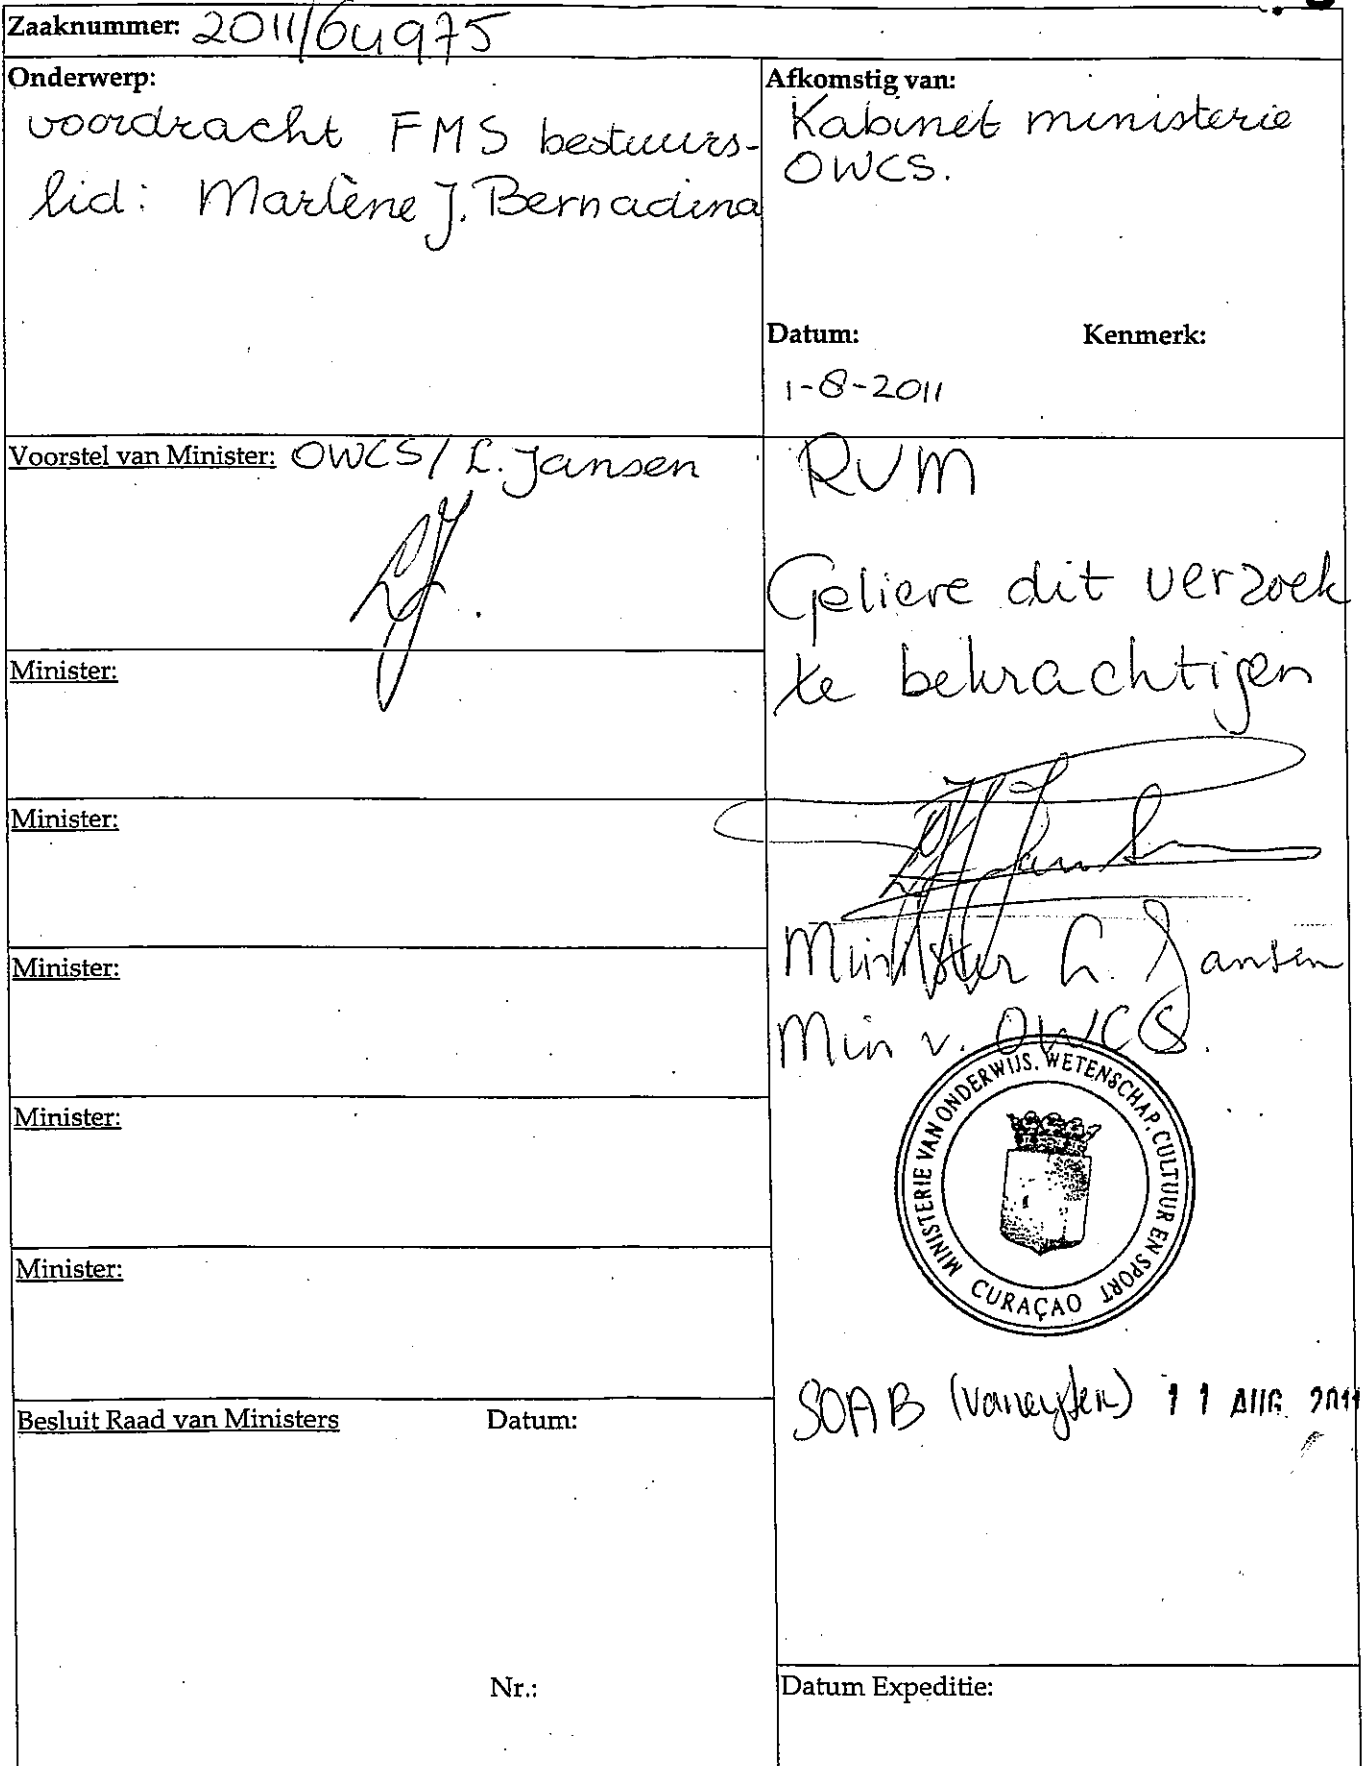 Zaaknummer: 2011/64975
Onderwerp:
voordracht FMS bestuurs-
lid: Marlène J. Bernadina
Afkomstig van:
Kabinet ministerie
OWCS.
Datum: Kenmerk:
1-8-2011
Voorstel van Minister: OWCS/ L. Jansen
Minister:
Minister:
Minister:
Minister:
Minister:
Besluit Raad van Ministers Datum:
Nr.:
RVM
Geliere dit verzoek
te bekrachtigen
Minister L. Jansen
Min v. OWCS.
MINISTERIE VAN ONDERWIJS, WETENSCHAP, CULTUUR EN SPORT
CURAÇAO
SOAB 11 AUG. 2011
Datum Expeditie: